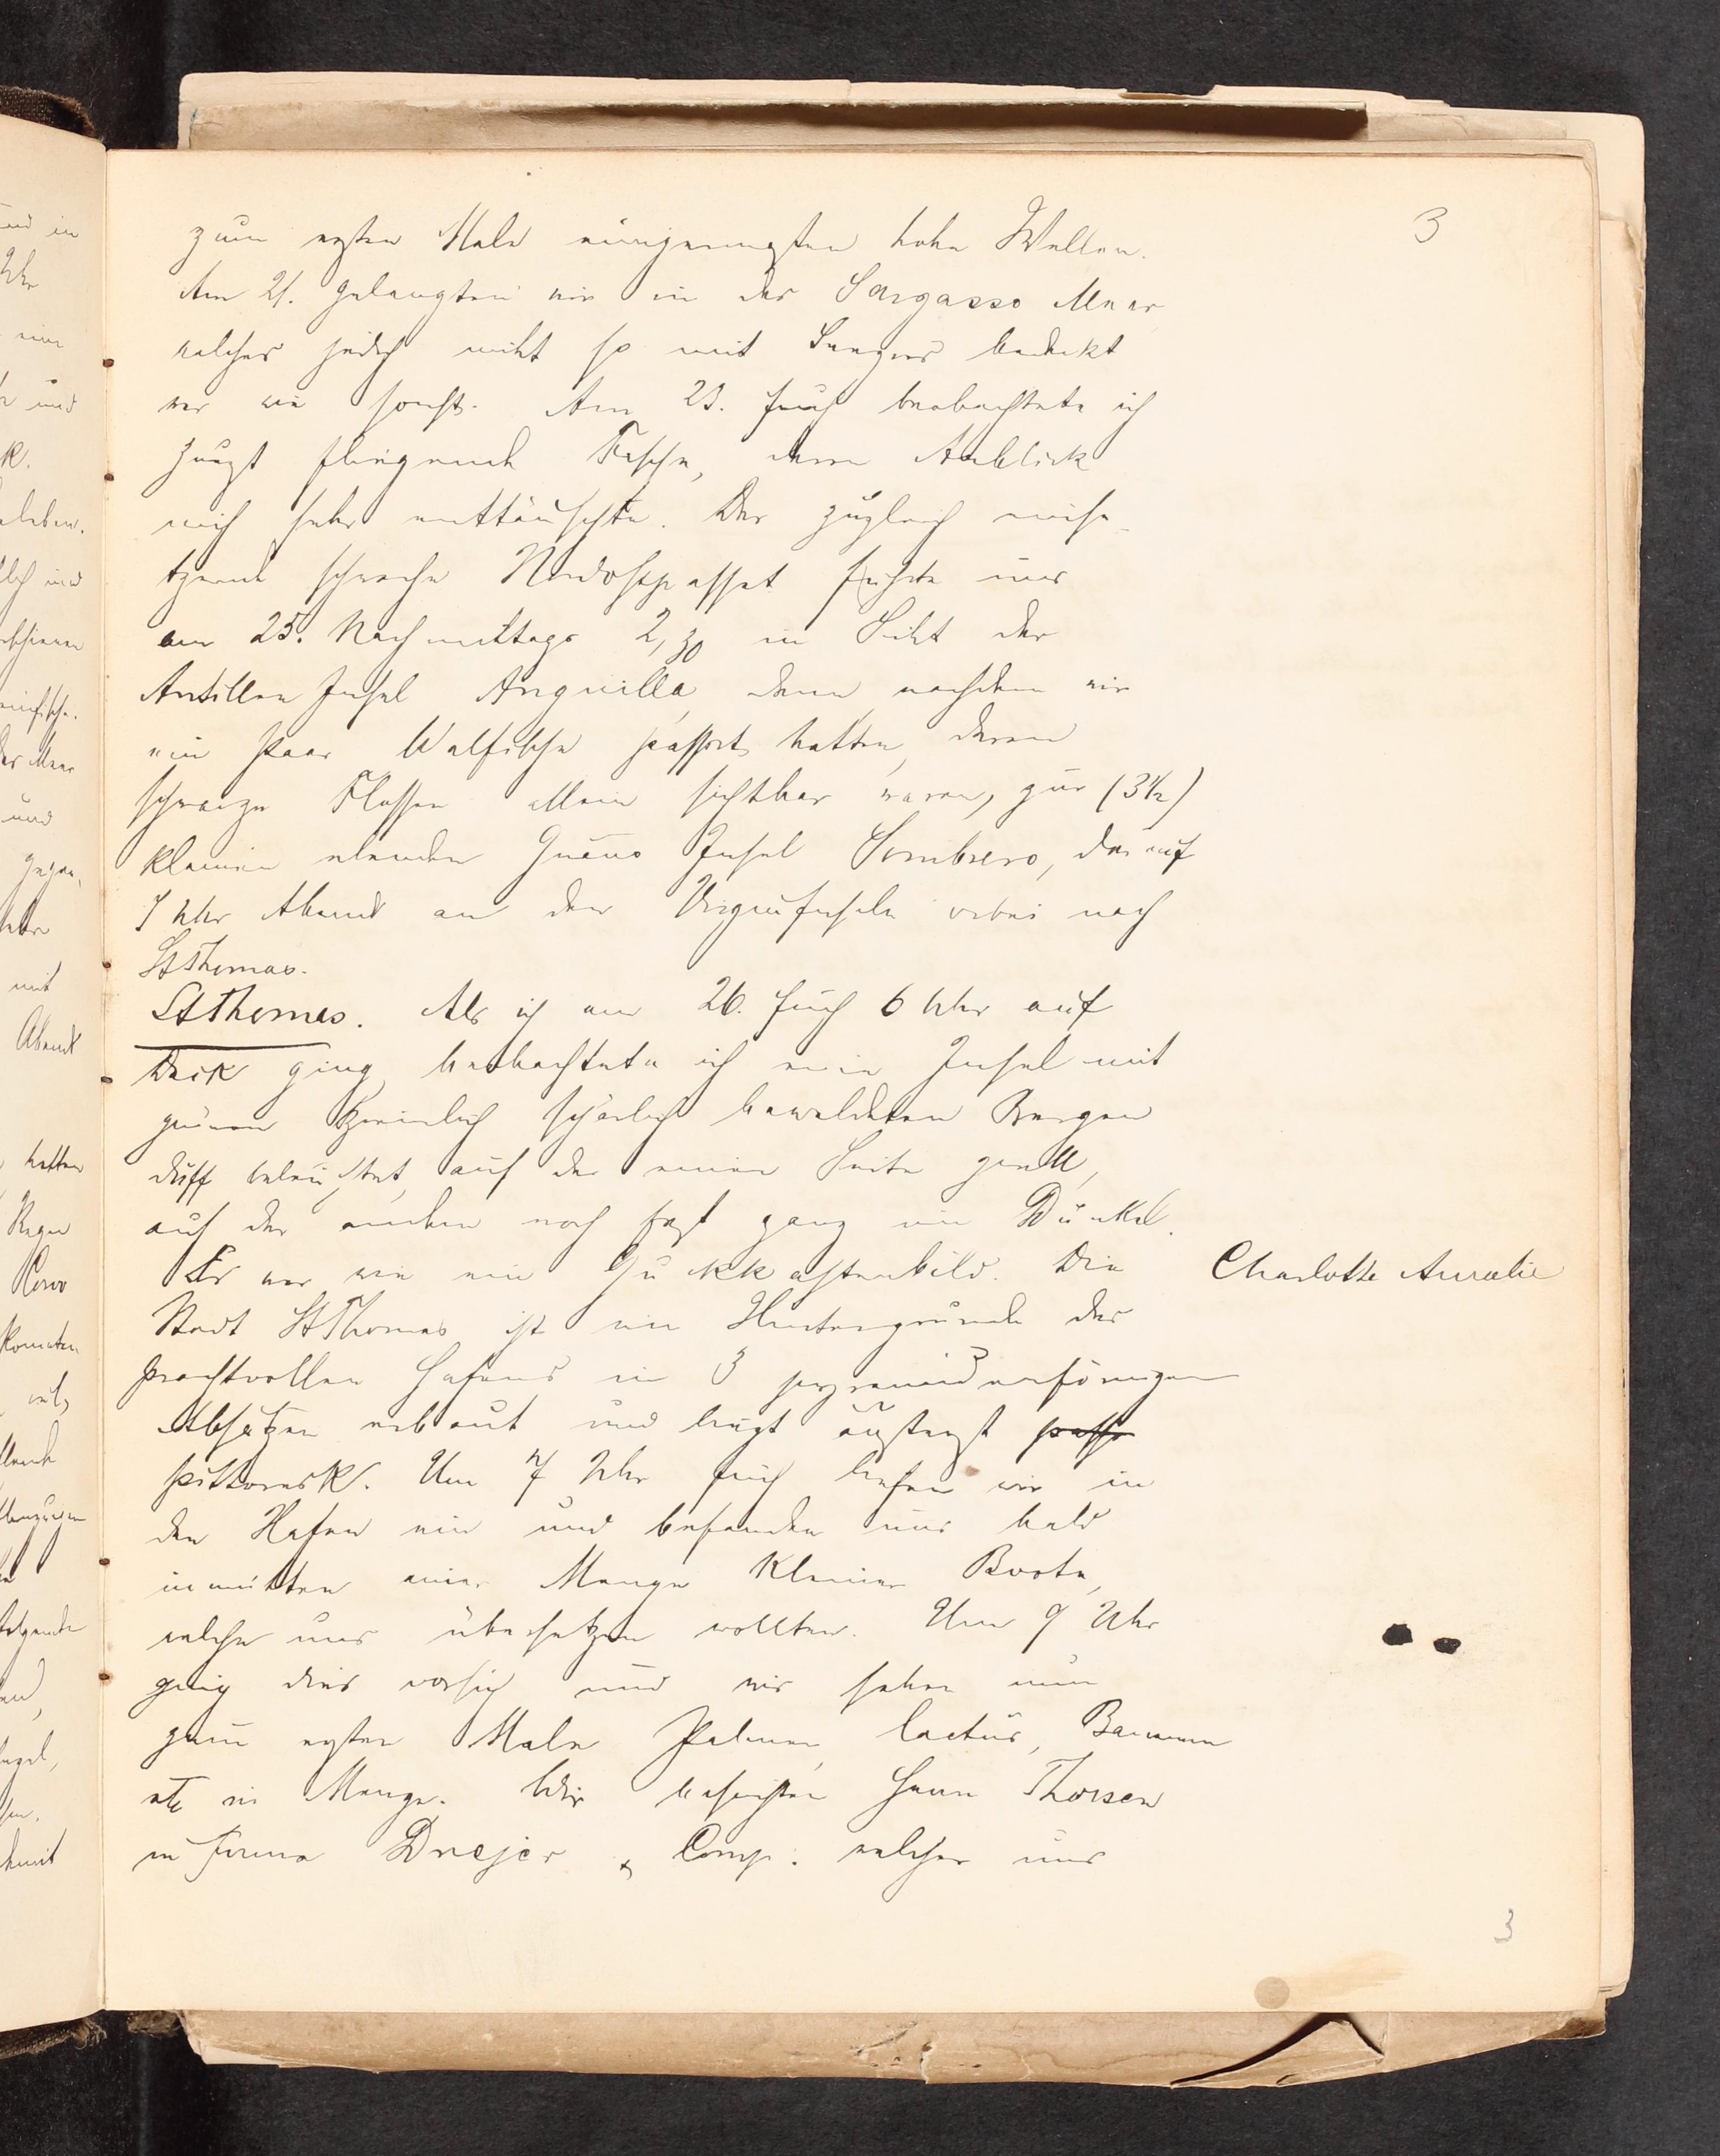 3
zum ersten Male einigermaßen hohe Wellen.
Am 21. gelangten wir in das Sargasso Meer
welches jedoch nicht so mit bedeckt
war wie sonst. Am 23. früh beobachtete ich
zuerst fliegende Fische, deren Anblick
mich sehr enttäuschte. Der zugleich einse-
tzende schwache Nordostpassat führte uns
am 25. Nachmittags 2,30 in Sicht der
Antillen Insel Anguilla, dann, nachdem wir
ein Paar Walfische passirt hatten, deren
schwarze Flossen allein sichtbar waren, zur (3½)
kleinen elenden Guano Insel Sombrero, darauf
7 Uhr Abends an den Virgininseln vorbei nach
St Thomas.
St Thomas. Als ich am 26. früh 6 Uhr auf
Deck ging, beobachtete ich eine Insel mit
grünen ziemlich spärlich bewaldeten Bergen
duff beleuchtet, auf der einen Seite grell,
auf der andern noch fast ganz im Dunkel.
Es war wie ein Guckkastenbild. Die
Charlotte Amalie
Stadt St Thomas ist im Hintergrunde des
prachtvollen Hafens in 3 pyramidenförmigen
Absätzen erbaut und liegt äußerst passe
pittoresk. Um 7 Uhr früh liefen wir in
den Hafen ein und befanden uns bald
inmitten einer Menge kleiner Boote,
welche uns übersetzen wollten. Um 9 Uhr
ging dies vorsich und wir sahen nun
zum ersten Male Palmen, Cactus, Bananen
etc in Menge. Wir besuchten Herrn Thorsen
in Firma & Comp. welcher uns
3